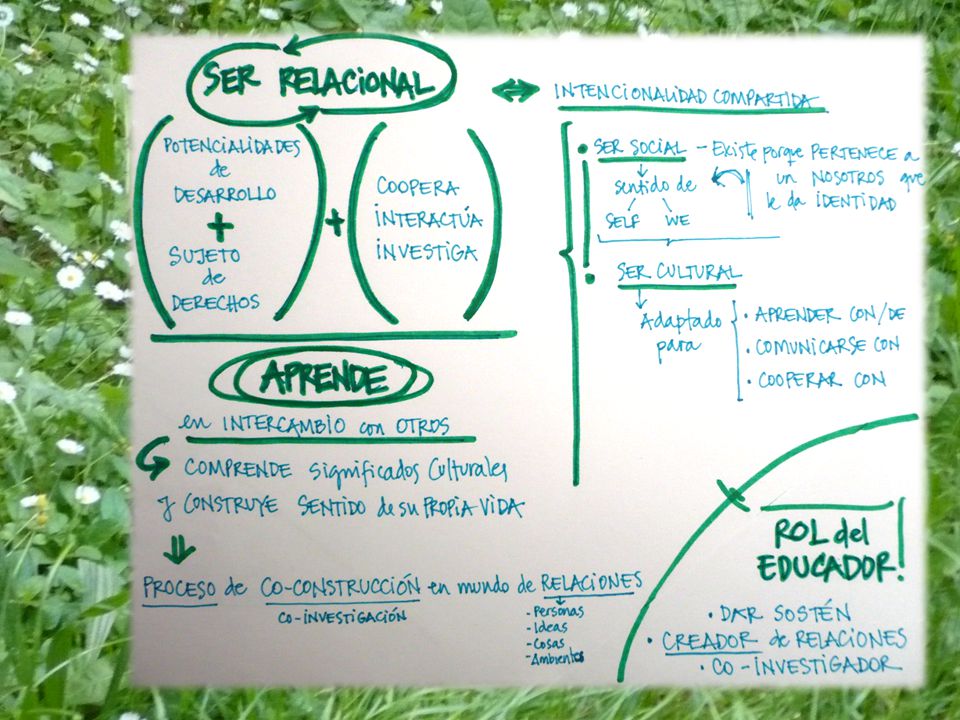 SER RELACIONAL
POTENCIALIDADES
de
DESARROLLO
+
SUJETO
de
DERECHOS
+
COOPERA
INTERACTÚA
INVESTIGA
APRENDE
en INTERCAMBIO con OTROS
COMPRENDE significados Culturales
y CONSTRUYE SENTIDO de su PROPIA VIDA
PROCESO de CO-CONSTRUCCIÓN en mundo de RELACIONES
CO-INVESTIGACIÓN
- Personas
- Ideas
- Cosas
- Ambientes
INTENCIONALIDAD COMPARTIDA
• SER SOCIAL - Existe porque PERTENECE a
un NOSOTROS que
le da IDENTIDAD
Sentido de
SELF WE
• SER CULTURAL
Adaptado
para
• APRENDER CON/DE
• COMUNICARSE CON
• COOPERAR CON
ROL del
EDUCADOR!
• DAR SOSTÉN
• CREADOR de RELACIONES
• CO-INVESTIGADOR